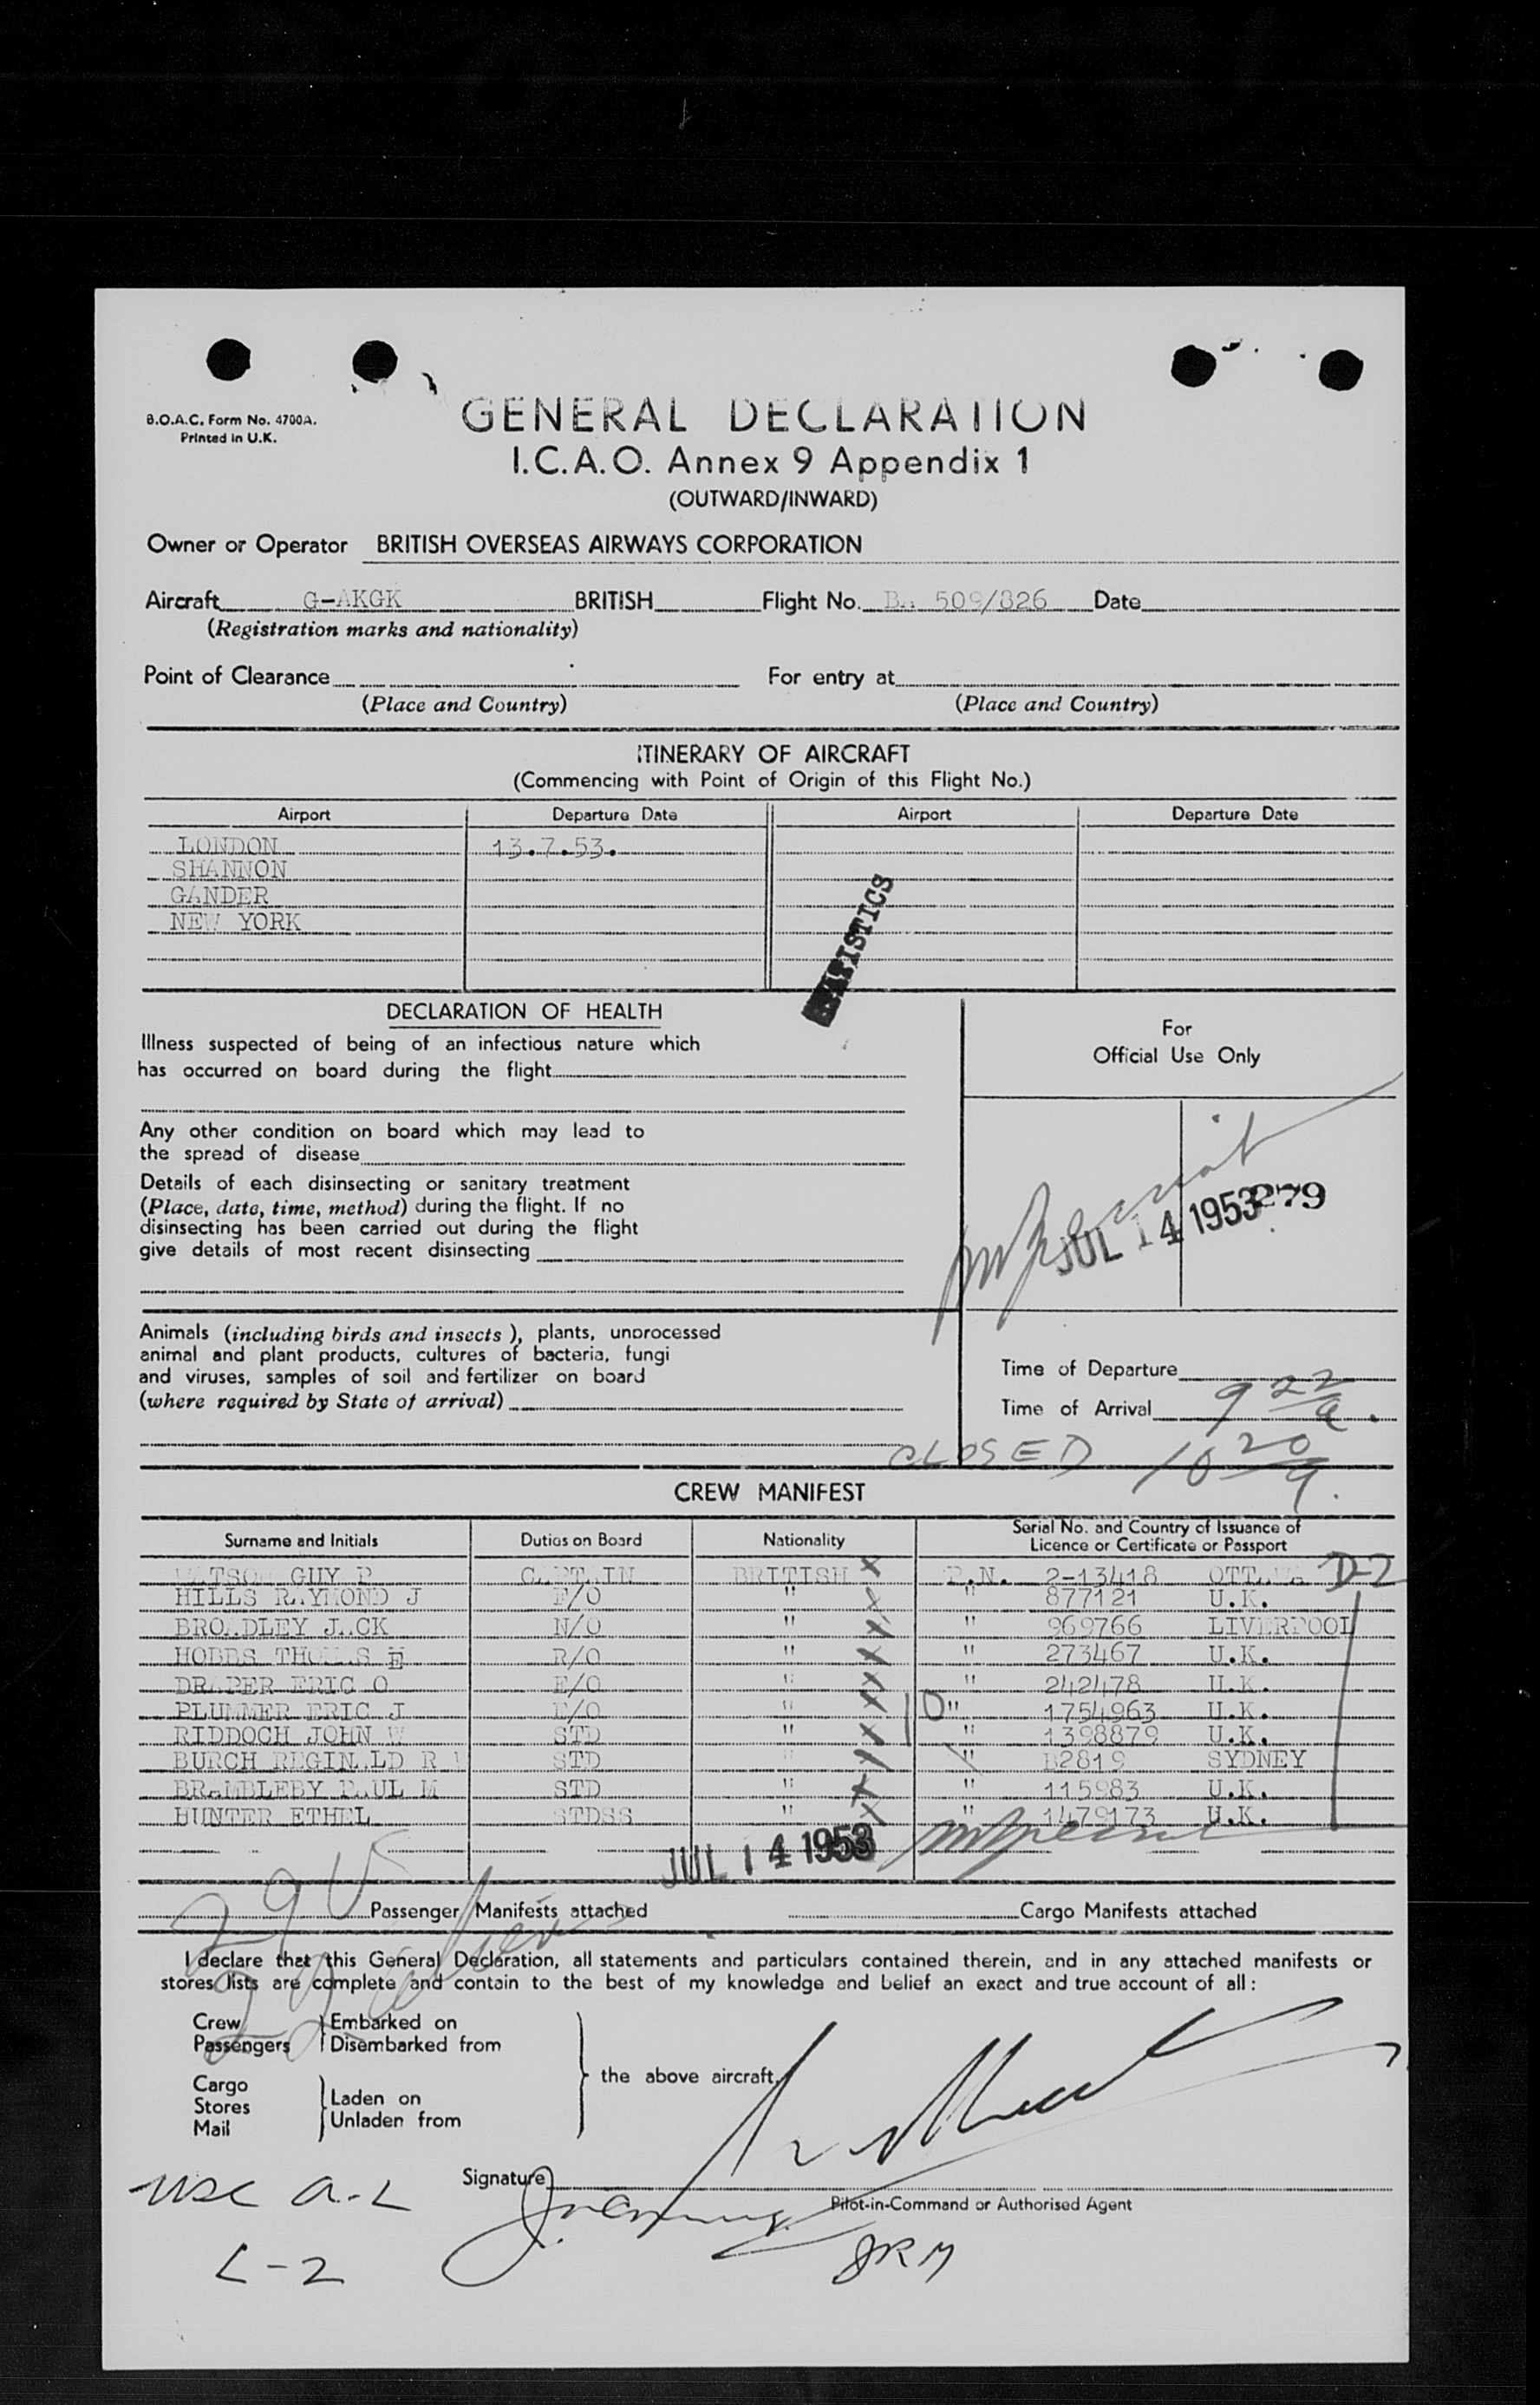 B.O.A.C. Form No. 4700A.
Printed in U.K.
GENERAL DECLARATION
I.C.A.O. Annex 9 Appendix 1
(OUTWARD/INWARD)
Owner or Operator BRITISH OVERSEAS AIRWAYS CORPORATION
Aircraft G-AKGK BRITISH Flight No. BA 509/826 Date
(Registration marks and nationality)
Point of Clearance For entry at
(Place and Country) (Place and Country)
ITINERARY OF AIRCRAFT
(Commencing with Point of Origin of this Flight No.)
Airport Departure Date Airport Departure Date
LONDON 13.7.53.
SHANNON
GANDER
NEW YORK
STATISTICS
DECLARATION OF HEALTH
Illness suspected of being of an infectious nature which
has occurred on board during the flight
Any other condition on board which may lead to
the spread of disease
Details of each disinsecting or sanitary treatment
(Place, date, time, method) during the flight. If no
disinsecting has been carried out during the flight
give details of most recent disinsecting
For
Official Use Only
JUL 14 1953 279
Animals (including birds and insects), plants, unprocessed
animal and plant products, cultures of bacteria, fungi
and viruses, samples of soil and fertilizer on board
(where required by State of arrival)
Time of Departure
Time of Arrival 9 22/a.
CLOSED 10 20/a.
CREW MANIFEST
Surname and Initials Duties on Board Nationality Serial No. and Country of Issuance of Licence or Certificate or Passport
WATSON GUY P CAPTAIN BRITISH x P.N. 2-13418 OTTAWA D-2
HILLS RAYMOND J F/O " x " 877121 U.K.
BROADLEY JACK N/O " x " 969766 LIVERPOOL
HOBBS THOMAS E R/O " x " 273467 U.K.
DRAPER ERIC O E/O " x " 242478 U.K.
PLUMMER ERIC J E/O " x " 1754963 U.K.
RIDDOCH JOHN W STD " x " 1398879 U.K.
BURCH REGINALD R W STD " x " B2819 SYDNEY
BRAMBLEBY PAUL M STD " x " 115983 U.K.
HUNTER ETHEL STDSS " x " 1479173 U.K.
JUL 14 1953
Passenger Manifests attached Cargo Manifests attached
I declare that this General Declaration, all statements and particulars contained therein, and in any attached manifests or
stores lists are complete and contain to the best of my knowledge and belief an exact and true account of all:
Crew Embarked on
Passengers Disembarked from
the above aircraft.
Cargo
Stores Laden on
Mail Unladen from
Signature
Pilot-in-Command or Authorised Agent
USC A-L
L-2
JRM